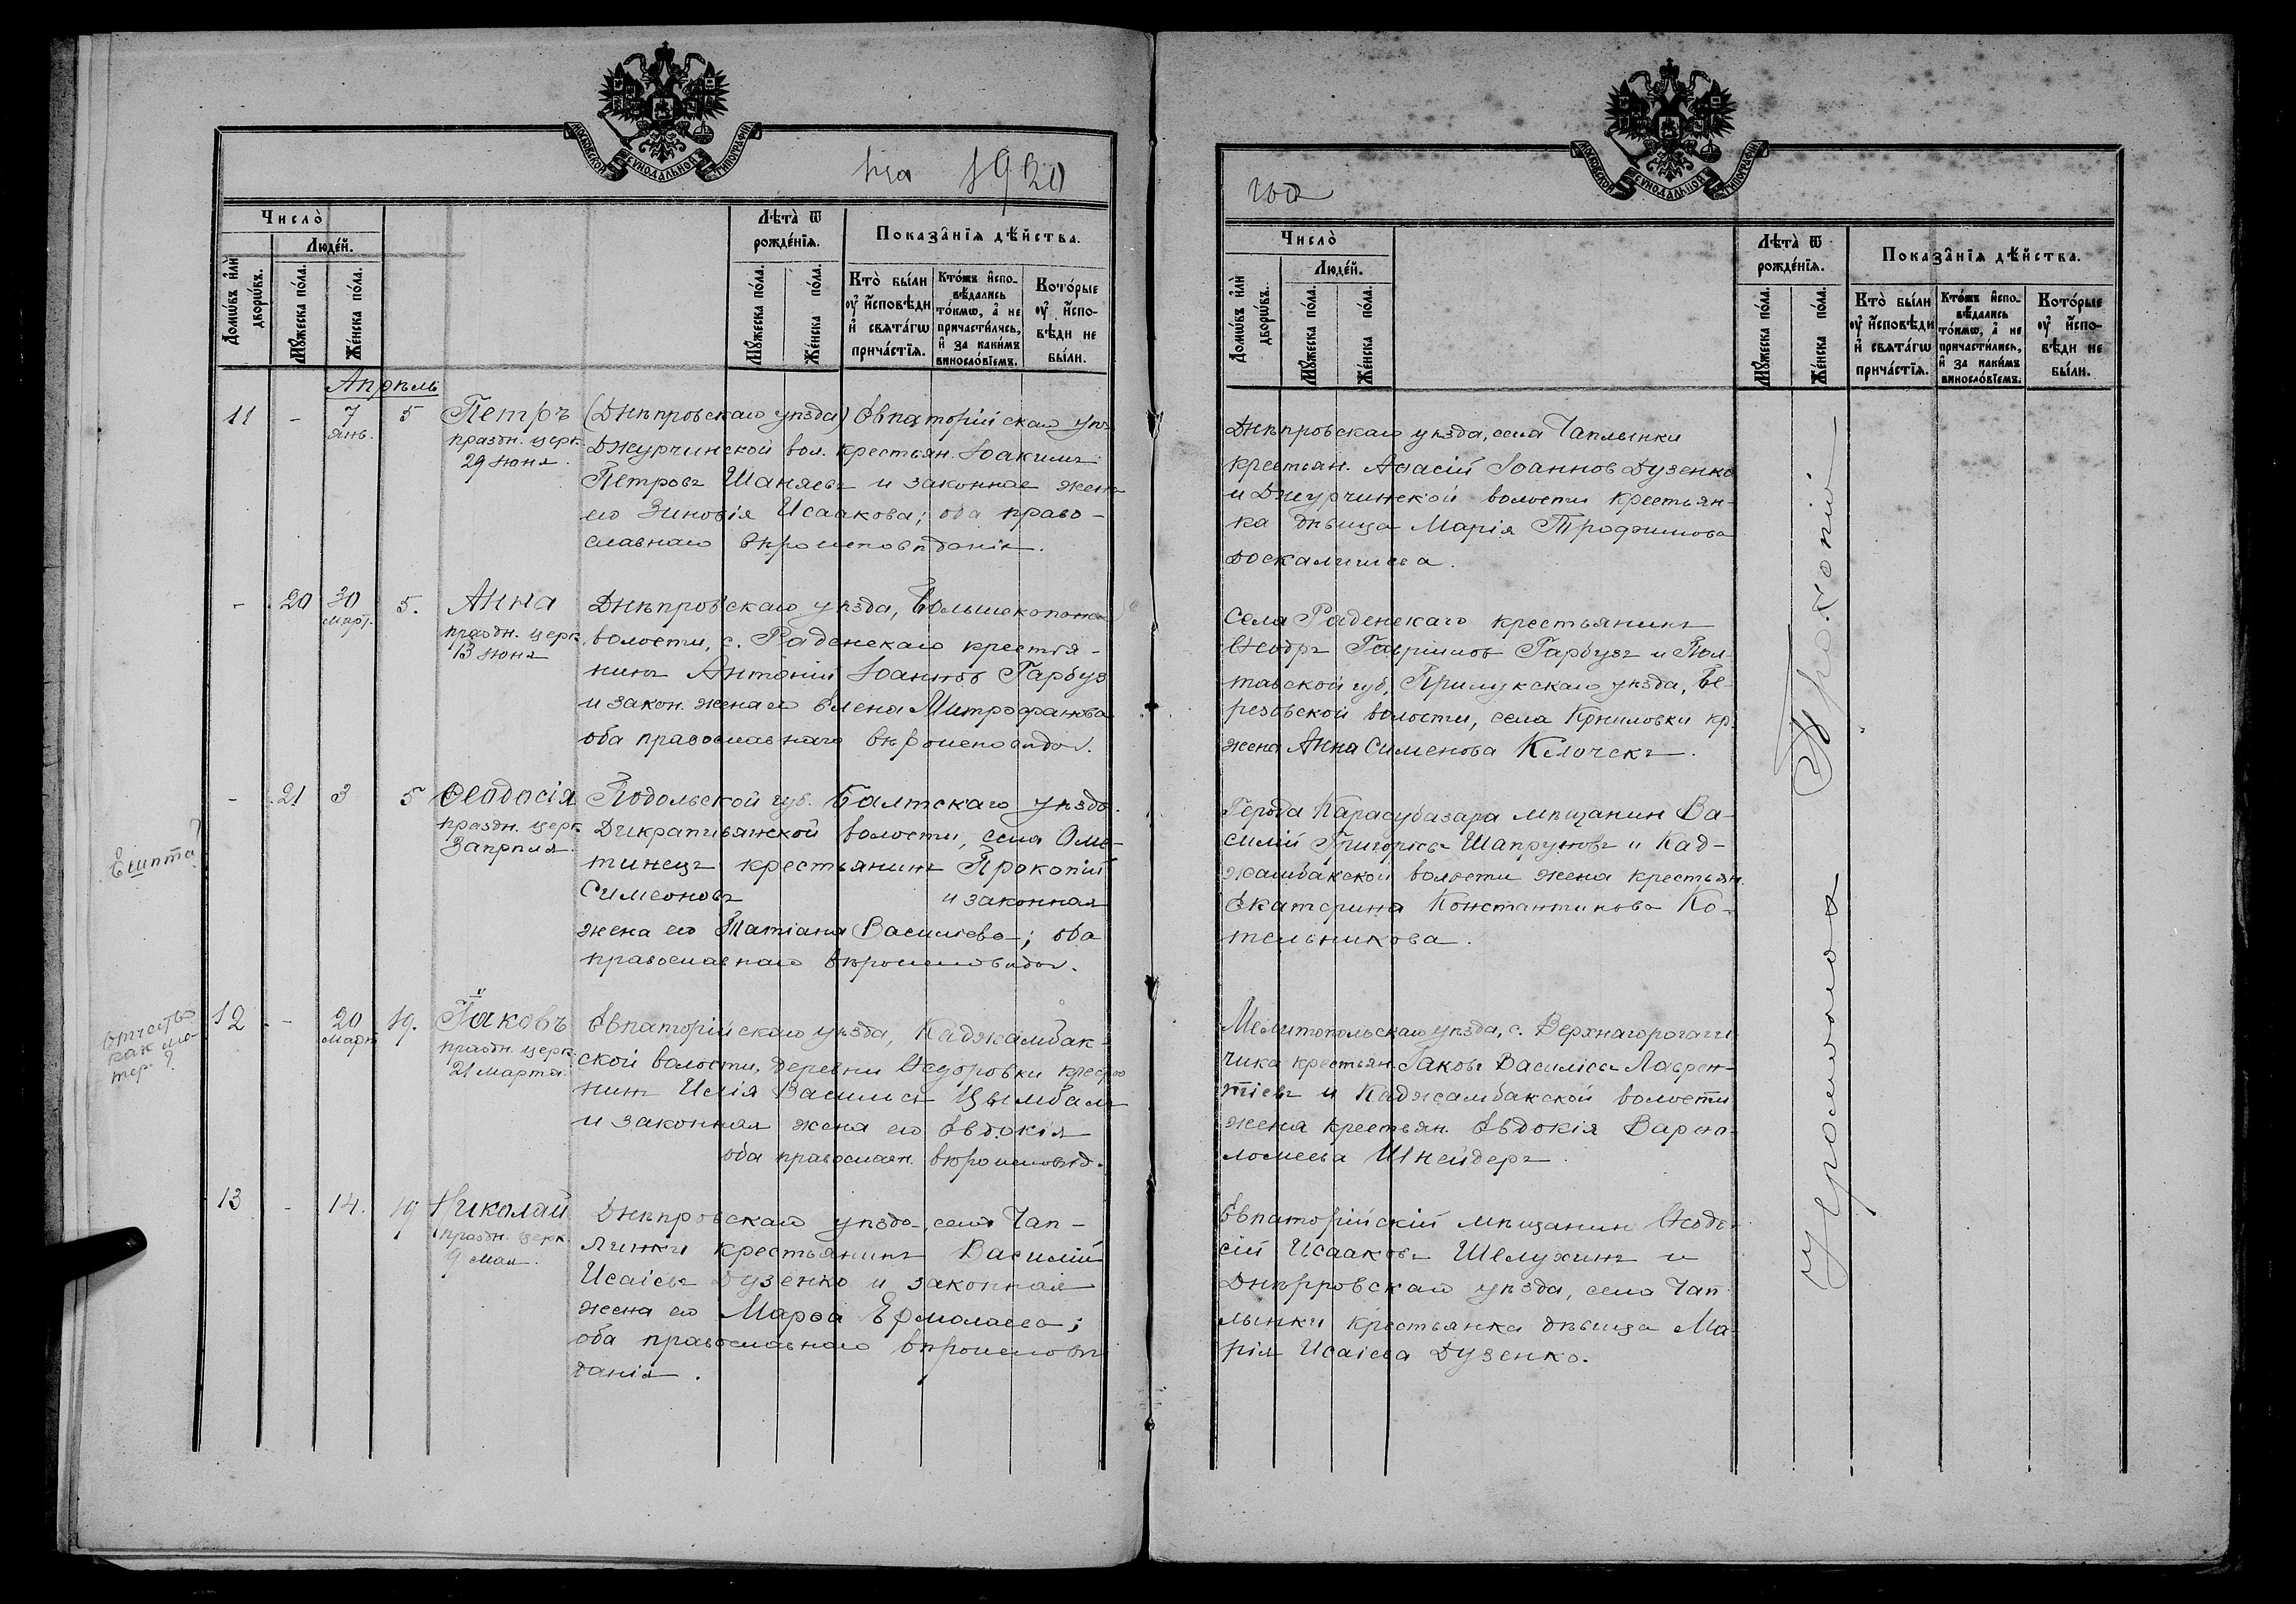 МОСКОВСКОЙ СѴНОДАЛЬНОЙ ТИПОГРАФІИ
на 1920
Число̀
Людéй.
Домѡ́въ и҆лѝ дворѡ́въ.
Мꙋ́жеска по́ла.
Же́нска по́ла.
Лѣ́та ѿ рожде́нїѧ.
Мꙋ́жеска по́ла.
Же́нска по́ла.
Показа̂нїѧ дѣ́йства.
Кто̀ бы́ли оу҆ и҆сповѣди и҆ свята́гѡ прича́стїѧ.
Кто́жъ и҆сповѣ́дались то́кмѡ, а҆ не причасти́лись, и҆ за каки́мъ виносло́вїемъ.
Кото́рые оу҆ и҆сповѣди не бы́ли.
Апрѣль
11 - 7 янв. 5
Петръ
праздн. церк.
29 Іюня.
(Днѣпровскаго уѣзда) Евпаторійскаго уѣз.
Джурчинской вол. крестьян. Іоакимъ
Петровъ Шаняевъ и законная жена
его Зиновія Исаакова; оба право-
славнаго вѣроисповѣданія.
- 20 30 март. 5.
Анна
праздн. церк.
13 Іюня
Днѣпровскаго уѣзда, Большекопанск
волости, с. Раденскаго крестья-
нинъ Антоній Іоанновъ Гарбуз
и закон. жена его Елена Митрофанова
оба православнаго вѣроисповѣдан.
- 21 3 5
Ѳеодосія
праздн. церк.
3 апрѣля
Подольской губ. Балтскаго уѣзда.
волости, села
крестьянинъ Прокопій
Симеоновъ и законная
жена его Татіана Васильева; оба
православнаго вѣроисповѣдан.
Египта?
12 - 20 марта 19.
Іаковъ
праздн. церк.
21 марта.
Евпаторійскаго уѣзда, Каджамбак-
ской волости, деревни Ѳедоровки крестья
нинъ Илія Васильевъ Цымбалъ
и законная жена его Евдокія
оба православн. вѣроисповѣд.
отчество
как ма-
тер.?
13 - 14. 19
Николай
праздн. церк.
9 мая.
Днѣпровскаго уѣзда, села Чап-
линки крестьянинъ Василій
Исаіевъ Дузенко и законная
жена его Марѳа Ермолаева;
оба православнаго вѣроисповѣ
данія.
МОСКОВСКОЙ СѴНОДАЛЬНОЙ ТИПОГРАФІИ
год
Число̀
Людéй.
Домѡ́въ и҆лѝ дворѡ́въ.
Мꙋ́жеска по́ла.
Же́нска по́ла.
Лѣ́та ѿ рожде́нїѧ.
Мꙋ́жеска по́ла.
Же́нска по́ла.
Показа̂нїѧ дѣ́йства.
Кто̀ бы́ли оу҆ и҆сповѣди и҆ свята́гѡ прича́стїѧ.
Кто́жъ и҆сповѣ́дались то́кмѡ, а҆ не причасти́лись, и҆ за каки́мъ виносло́вїемъ.
Кото́рые оу҆ и҆сповѣди не бы́ли.
Днѣпровскаго уѣзда, села Чаплынки
крестьян. Іоанновъ Дузенко
и Джурчинской волости крестьян-
ка дѣвица Марія Трофимова
Доскаличева.
Села Раденскаго крестьянинъ
Ѳеодоръ Гавріиловъ Гарбузъ и Пол-
тавской губ. Прилукскаго уѣзда, Бе-
резовской волости, села кр.
жена Анна Сименова Клочекъ.
Города Карасубазара мѣщанин Ва-
силій Григорьевъ Шапруновъ и Кад-
жамбакской волости жена крестьян.
Екатерина Константинова Ко-
тельникова.
Мелитопольскаго уѣзда, с. Верхнягорогач-
чика крестьян. Іаковъ Василіевъ Лаврен-
тіевъ и Каджамбакской волости
жена крестьян. Евдокія Варѳо-
ломеева Шнейдеръ.
Евпаторійскій мѣщанин Ѳеодо-
сій Исааковъ Шелухинъ и
Днѣпровскаго уѣзда, села Чап
лынки крестьянка дѣвица Ма-
рія Исаіева Дузенко.
Протоіерей